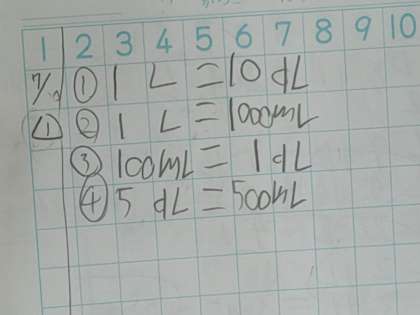 1 2 3 4 5 6 7 8 9 10
① 1 L = 10 dL
① ② 1 L = 1000mL
③ 100mL = 1 dL
④ 5 dL = 500mL